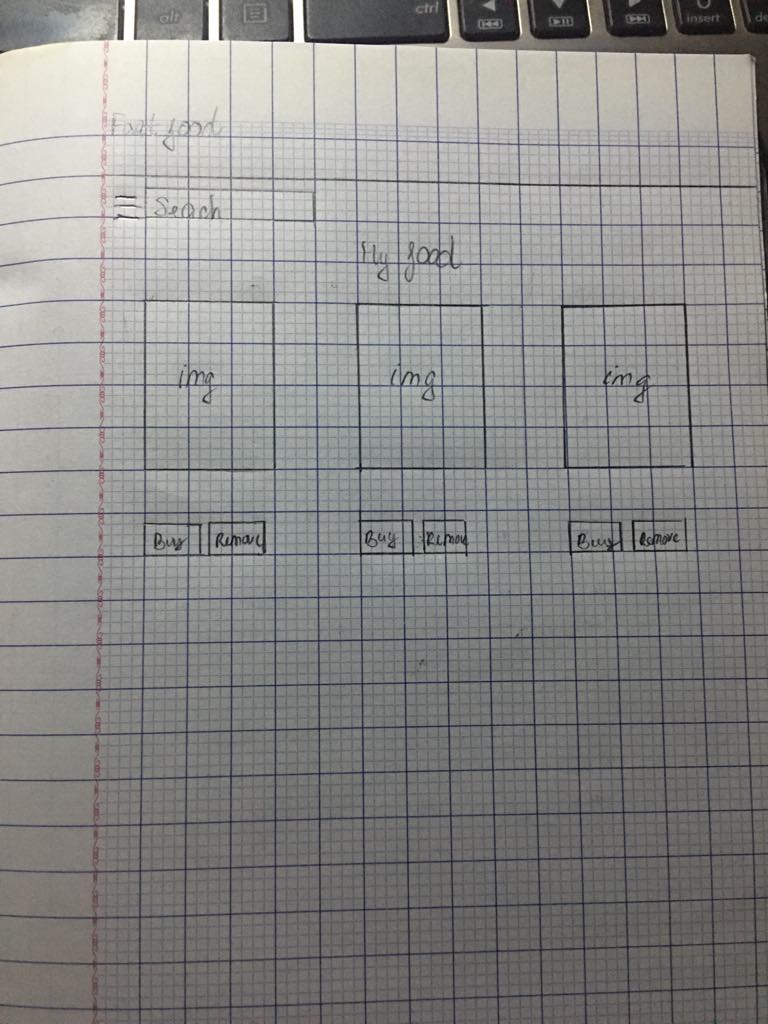 alt
ctrl
insert
Fast food
Search
My food
img img img
Buy Remove Buy Remov Buy Remove